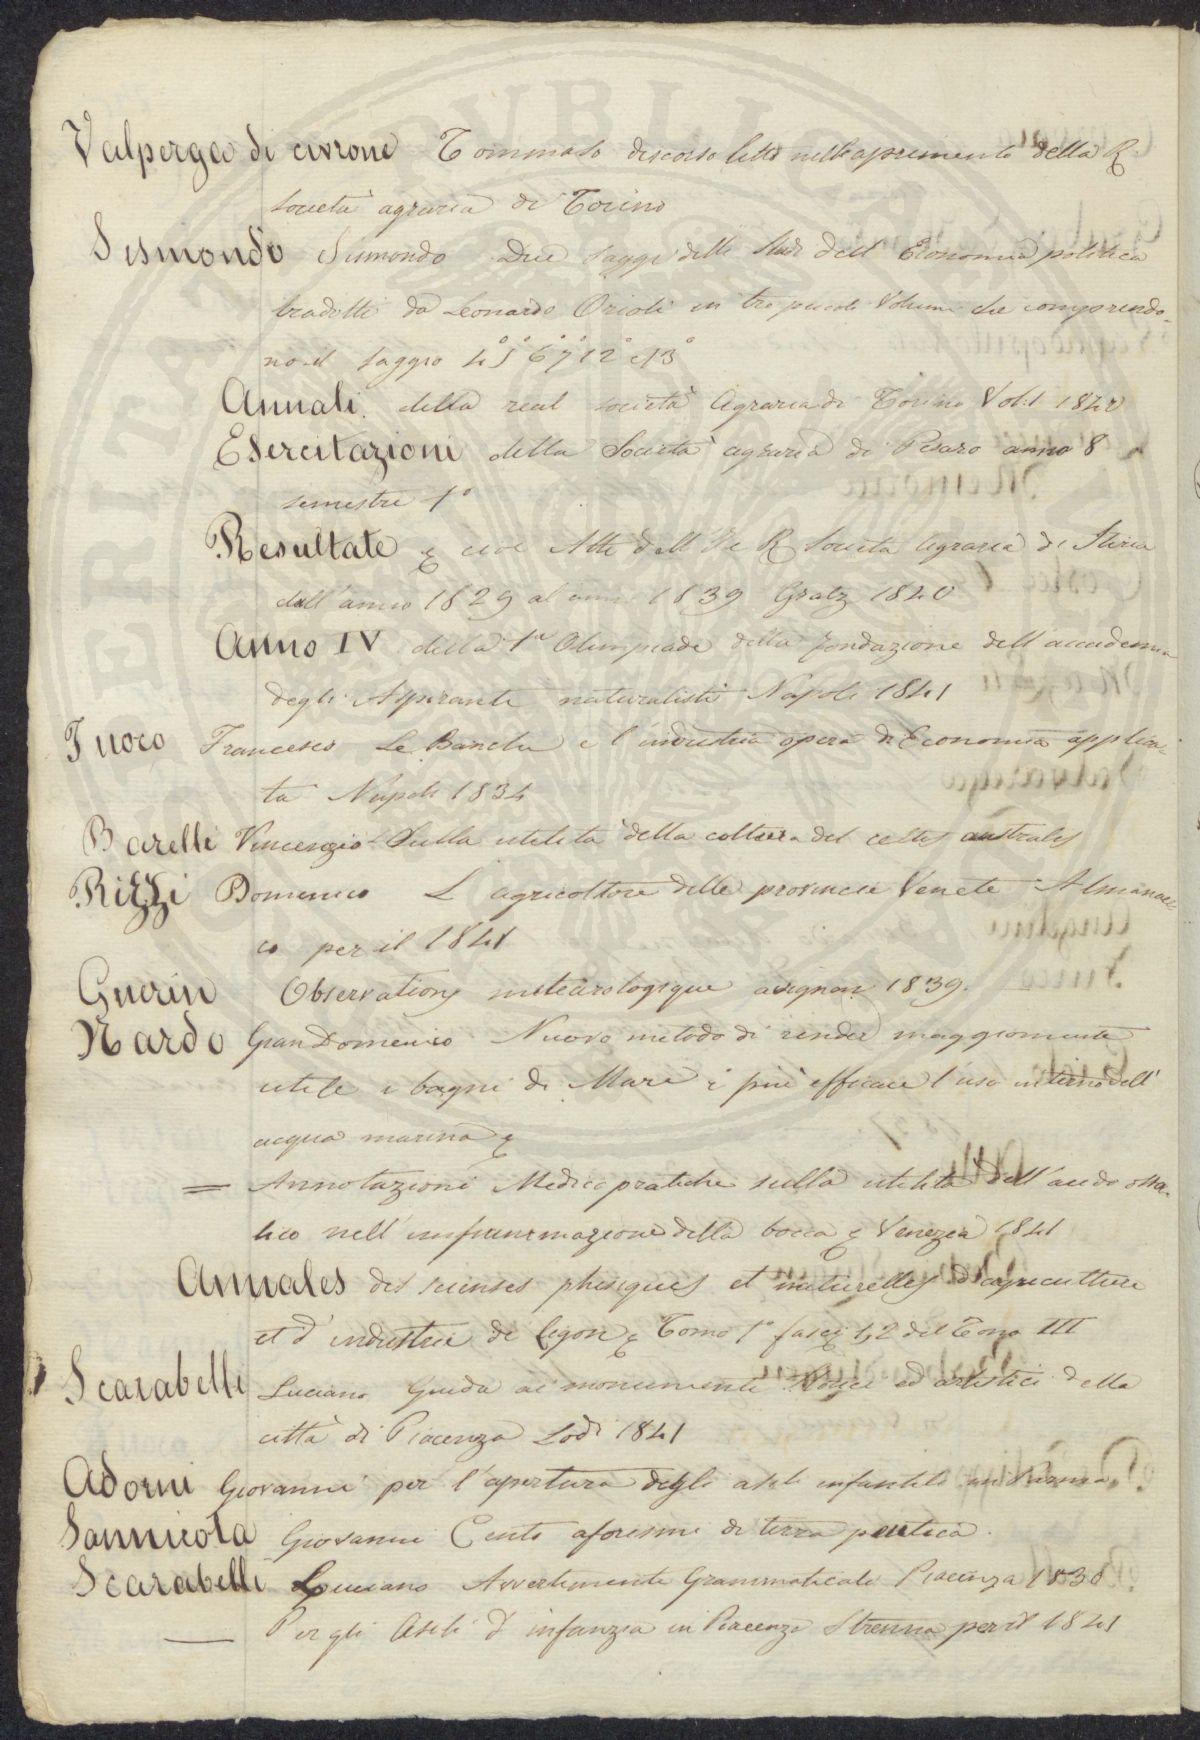 Valperga di civrone Tommaso discorso letto nell'aprimento della R.
società agraria di Torino
Sismondo Sismondo Due saggi delli Studi dell Economia politica
tradotti da Leonardo Orioli in tre piccoli Volumi che comprendo-
no il saggio 4° 5° 6° 7° 12° e 13°
Annali della real società Agraria di Torino Vol. 1 1840
Esercitazioni della Società agraria di Pesaro anno 8
semestre 1°
Resultate & cioè Atti dell' I e R Società Agraria di Stiria
dall'anno 1829 al anno 1839 Gratz 1840
Anno IV della 1a Olimpiade della fondazione dell'accademia
degli Aspiranti naturalisti Napoli 1841
Fuoco Francesco Le Banche e l'industria opera di Economia applica-
ta Napoli 1834
Barelli Vincenzio Sulla utilità della coltura del celtis australis
Rizzi Domenico L agricoltore delle provincie Venete Almanac-
co per il 1841
Guerin Observations meteorologique avignon 1839.
Nardo GianDomenico Nuovo metodo di render maggiormente
utile i bagni di Mare e più efficace l'uso interno dell'
acqua marina &
= Annotazioni Medico pratiche sulla utilità dell'acido ossa-
lico nell'infiammazione della bocca & Venezia 1841
Annales des scienses phisiques et naturelles d'agriculture
et d'industrie de Lyon & Tomo 1° fasci 1, 2 del Tomo III
Scarabelli Luciano Guida ai monumenti storici ed artistici della
città di Piacenza Lodi 1841
Adorni Giovanni per l'apertura degli asili infantili in Parma
Sannicola Giovanni Cento aforismi di terra peutica.
Scarabelli Luciano Avvertimenti Grammaticali Piacenza 1838
— Per gli Asili d'infanzia in Piacenza Strenna per il 1841